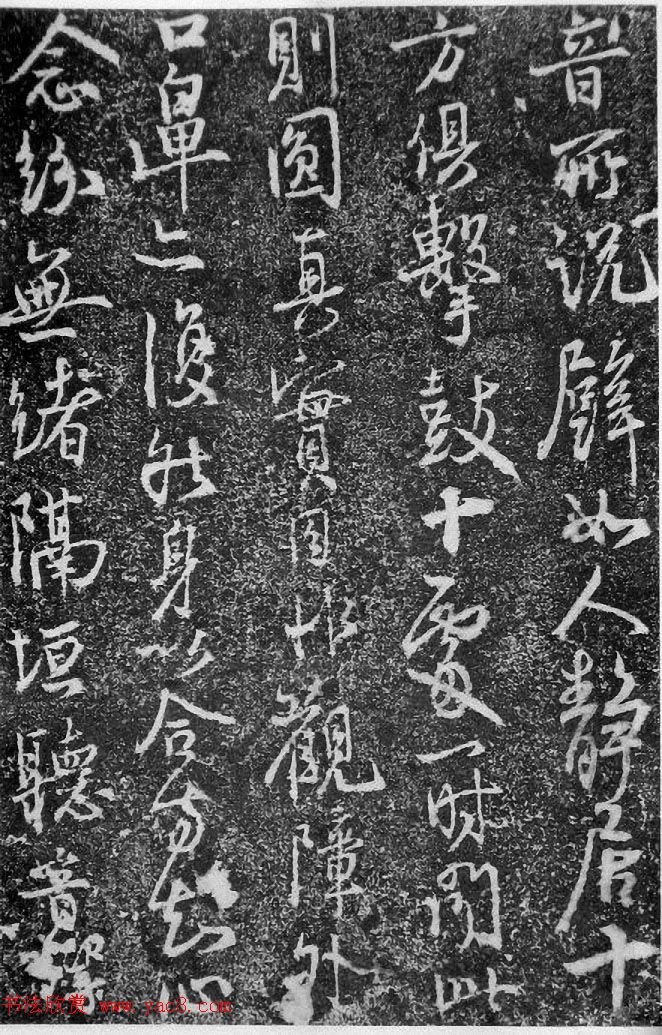 音所說譬如人靜居十
方俱擊鼓十處一時聞此
則圓真實目非觀障外
口鼻亦復然身以合方知心
念紛無緒隔垣聽音響
书法欣赏 www.yac8.com